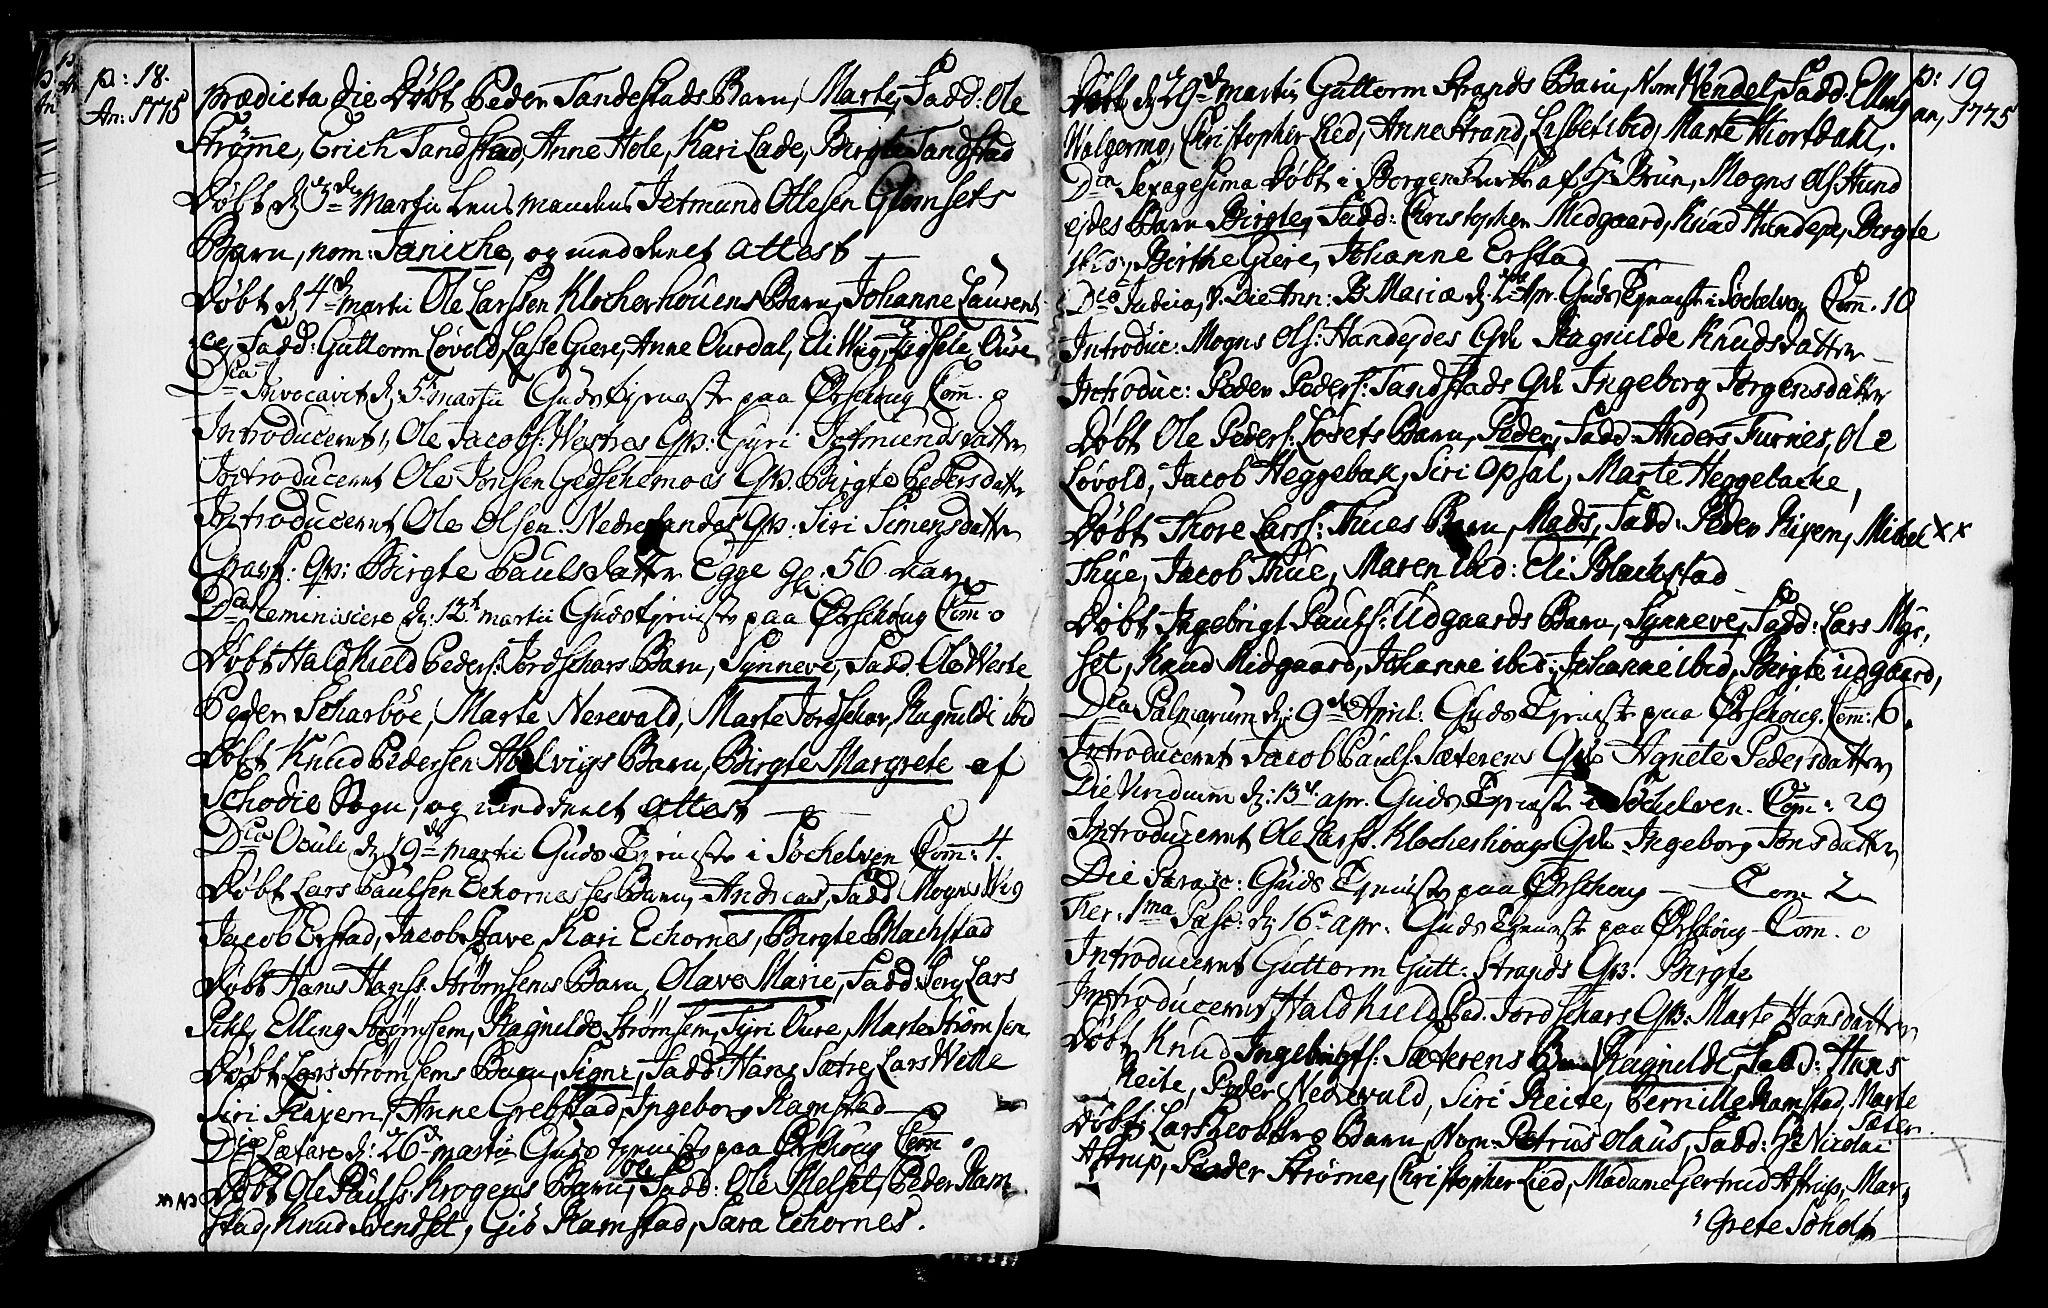 p: 18.
An: 1775
prædicta Die Døbt Peder Tandestads Barn, Marte, Fadd: Ole
Strømme, Erich Tandstad, Anne Hole, Kari Lade, Birgte Tandstad
Døbt d. 3de Martii Lens mandens Jetmund Ottesen Glomsets
Barn, nom: Taniche, og meddeelt attest
Døbt d. 4de martii Ole Larssen Klocherhouens Barn, Johanne Laurent
ce, Fadd: Guttorm Løvold, Lasse Giere, Anne Aurdal, Eli Wiig, Zidsele Aure
Dca Invocavit d. 5t martii Guds tjeneste paa Ørschoug Com. 0
Introduceret, Ole Jacobs: Westres Qv: Gyri Jetmundsdatter
Introduceret Ole Jonsen Gedschemoes Qv. Birgte Pedersdatter
Introduceret Ole Olsen Nedrelandes Qv: Siri Simensdatter
Graff: Qv: Birgte Paulsdatter Egge gl: 56 aar
Dca Reminiscere d: 12t martii Guds tjeneste paa Ørschoug Com 0
Døbt Haldkield Peders: Jordschars Barn, Synneve, Fadd. Ole Weste
Peder Scharbøe, Marte Nerevald, Marte Jordschar, Ragnilde ibid
Døbt Knud Pedersen Abelvigs Barn, Birgte Margrete af
Schodie Sogn, og meddeelt attest
Dca Oculi d. 19de martii Guds Tjeneste i Søchelven Com: 4.
Døbt Lars Paulsen Echornæsses Barn, Andreas, Fadd Mogens Wiig
Jacob Erstad, Jacob Have, Kari Echornes, Birgte Blachstad
Døbt Hans Hanss: Strømsems Barn, Olave Marie, Fadd: Serg. Lars
Pihl, Elling Strømsem, Ragnilde Strømsem, Gyri Aure, Marte Strømsem
Døbt Lars Strømsems Barn, Signe, Fadd: Hans Sætre, Lars Welle
Siri Rixem, Anne Grebstad, Ingeborg Ramstad
Dca Lætare d: 26t martii Guds tjeneste paa Ørschoug Com 0
Døbt Ole Pauls: Krogens Barn, Fadd: Ole Melset, Peder Ram
stad, Knud Svendset, Giø Ramstad, Sara Echornes.
p: 19
an, 1775
Døbt d. 29de martii Guttorm Strands Barn, Nom Wendel, Fadd: Elling
Walgermo, Christopher Lied, Anne Strand, Lisbet ibid, Marte Hiortdahl.
Dca Sexagesima Døbt i Borgen Kirke af Hr Brun, Mogns Ols: Hund
ejdes Barn Birgte, Fadd: Christopher Midgaard, Knud Hundeje, Birgte
ibid:, Birthe Giere, Johanne Erstad
Dca Judica, v. Die Ann: B. Mariæ d. 2 Apr. Guds Tjeneste i Søchelven Com. 10
Introduc: Mogns Ols: Handeydes Qv: Ragnilde Knudsdatter
Introduc: Peder Peders: Tandstads Qv: Ingeborg Jørgensdatter
Døbt Ole Peders: Løsets Barn, Peder, Fadd: Anders Furnes, Ole
Løvold, Jacob Heggebak, Siri Opsal, Marte Heggebacke,
Døbt Thore Larss: Thues Barn, Mads, Fadd: Peder Rixem, Michel xx
Thue, Jacob Thue, Maren ibid: Eli Blachstad
Døbt Ingebrigt Pauls: Udgaards Barn, Synneve, Fadd: Lars Myr,
set, Knud Midgaard, Johanne ibid, Johanne ibid, Birgte udgaard,
Dca Palmarum d: 9de April: Guds Tjeneste paa Ørschoug. Com: 6.
Introduceret Jacob Pauls: Sæterens Qv: Agnete Pedersdatter
Die Viridium d: 13t apr. Guds Tjeneste i Søchelven. Com: 29
Introduceret Ole Larss: Klocherhougs Qv: Ingeborg Jonsdatter
Die Parasc: Guds Tjeneste paa Ørschoug Com 2
Fer: 1ma Pasc: d: 16t apr. Guds Tjeneste paa Ørschoug Com. 0
Introduceret Guttorm Gutt: Strands Qv. Birgte
Introduceret Haldkield Ped. Jordschars Qv: Marte Hansdatter
Døbt Knud Ingebrigts: Sæterens Barn Ragnilde, Fadd: Hans
Reite, Peder Nedrevald, Siri Reite, Pernille Ramstad, Marte
Sæter.
Døbt: Lars Jacobsens Barn, Nom: Petrus Olaus, Fadd: Hr Nicolai
Astrup, Peder Strømme, Christopher Lied, Madame Gertrud Astrup, Mar,
Grete Søholt